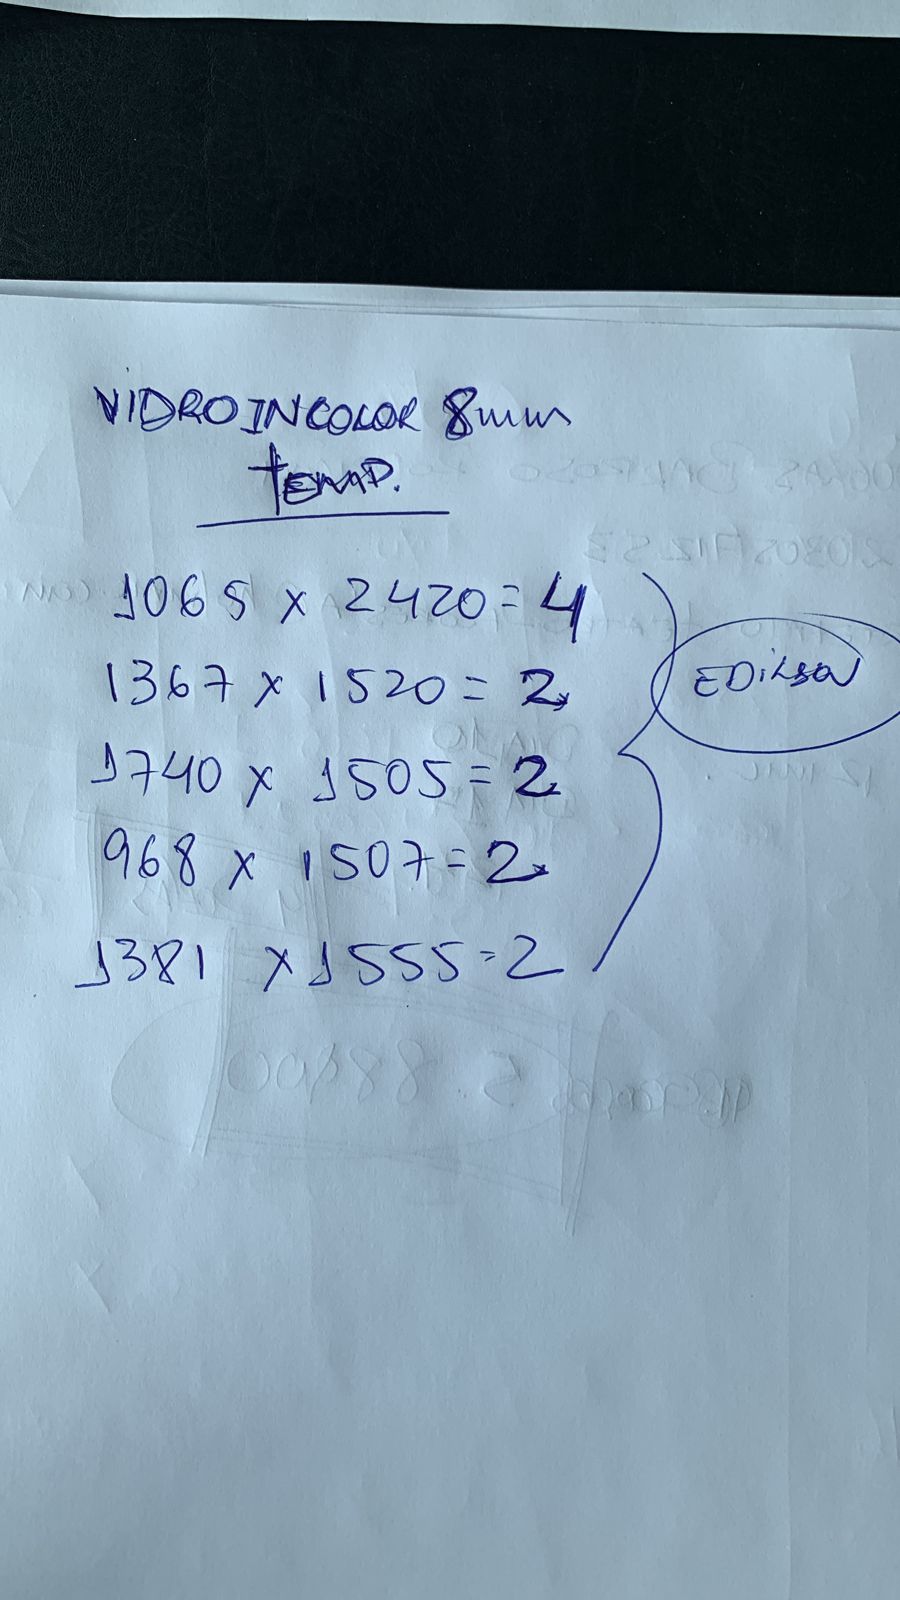 VIDRO INCOLOR 8mm
TEMP.
1065 x 2420 = 4
1367 x 1520 = 2
EDILSON
1740 x 1505 = 2
968 x 1507 = 2
1381 x 1555 = 2